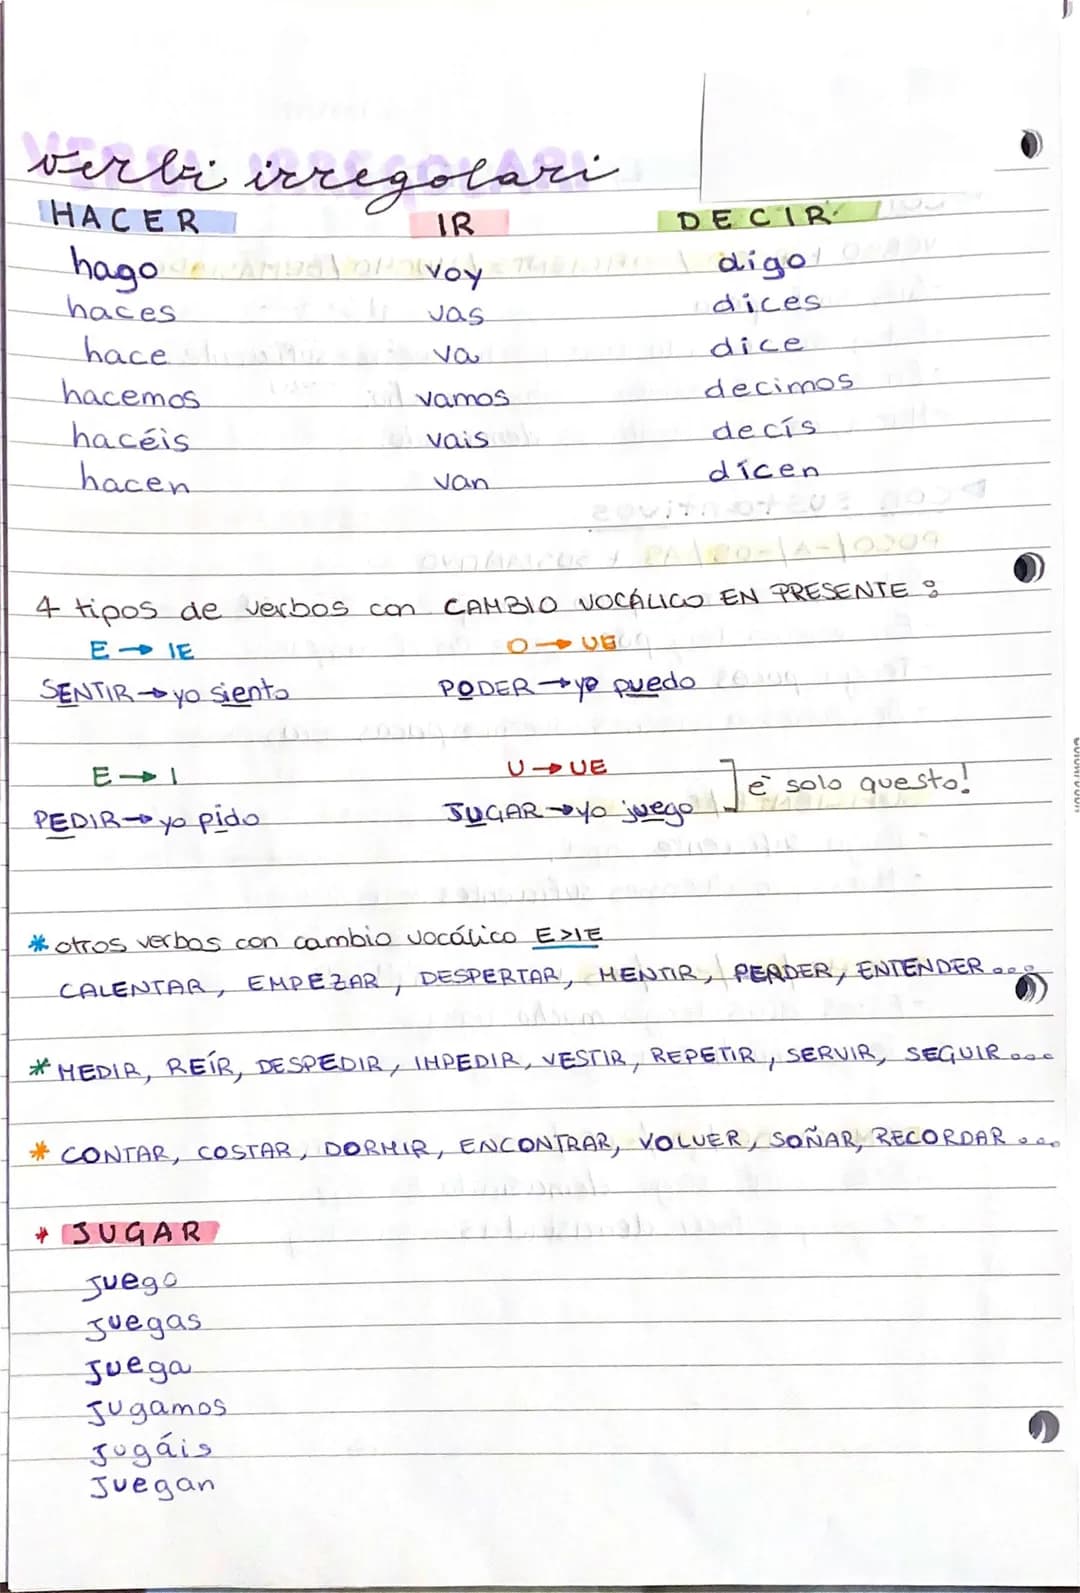 verbi irregolari
HACER IR DECIR
hago voy digo
haces vas dices
hace va dice
hacemos vamos decimos
hacéis vais decís
hacen van dicen
4 tipos de verbos con CAMBIO VOCÁLICO EN PRESENTE:
E → IE O → UE
SENTIR → yo siento PODER → yo puedo
E → I U → UE
PEDIR → yo pido JUGAR → yo juego ] è solo questo!
* otros verbos con cambio vocálico E>IE
CALENTAR, EMPEZAR, DESPERTAR, MENTIR, PERDER, ENTENDER...
* MEDIR, REÍR, DESPEDIR, IMPEDIR, VESTIR, REPETIR, SERVIR, SEGUIR...
* CONTAR, COSTAR, DORMIR, ENCONTRAR, VOLVER, SOÑAR, RECORDAR...
* JUGAR
Juego
Juegas
Juega
Jugamos
Jugáis
Juegan